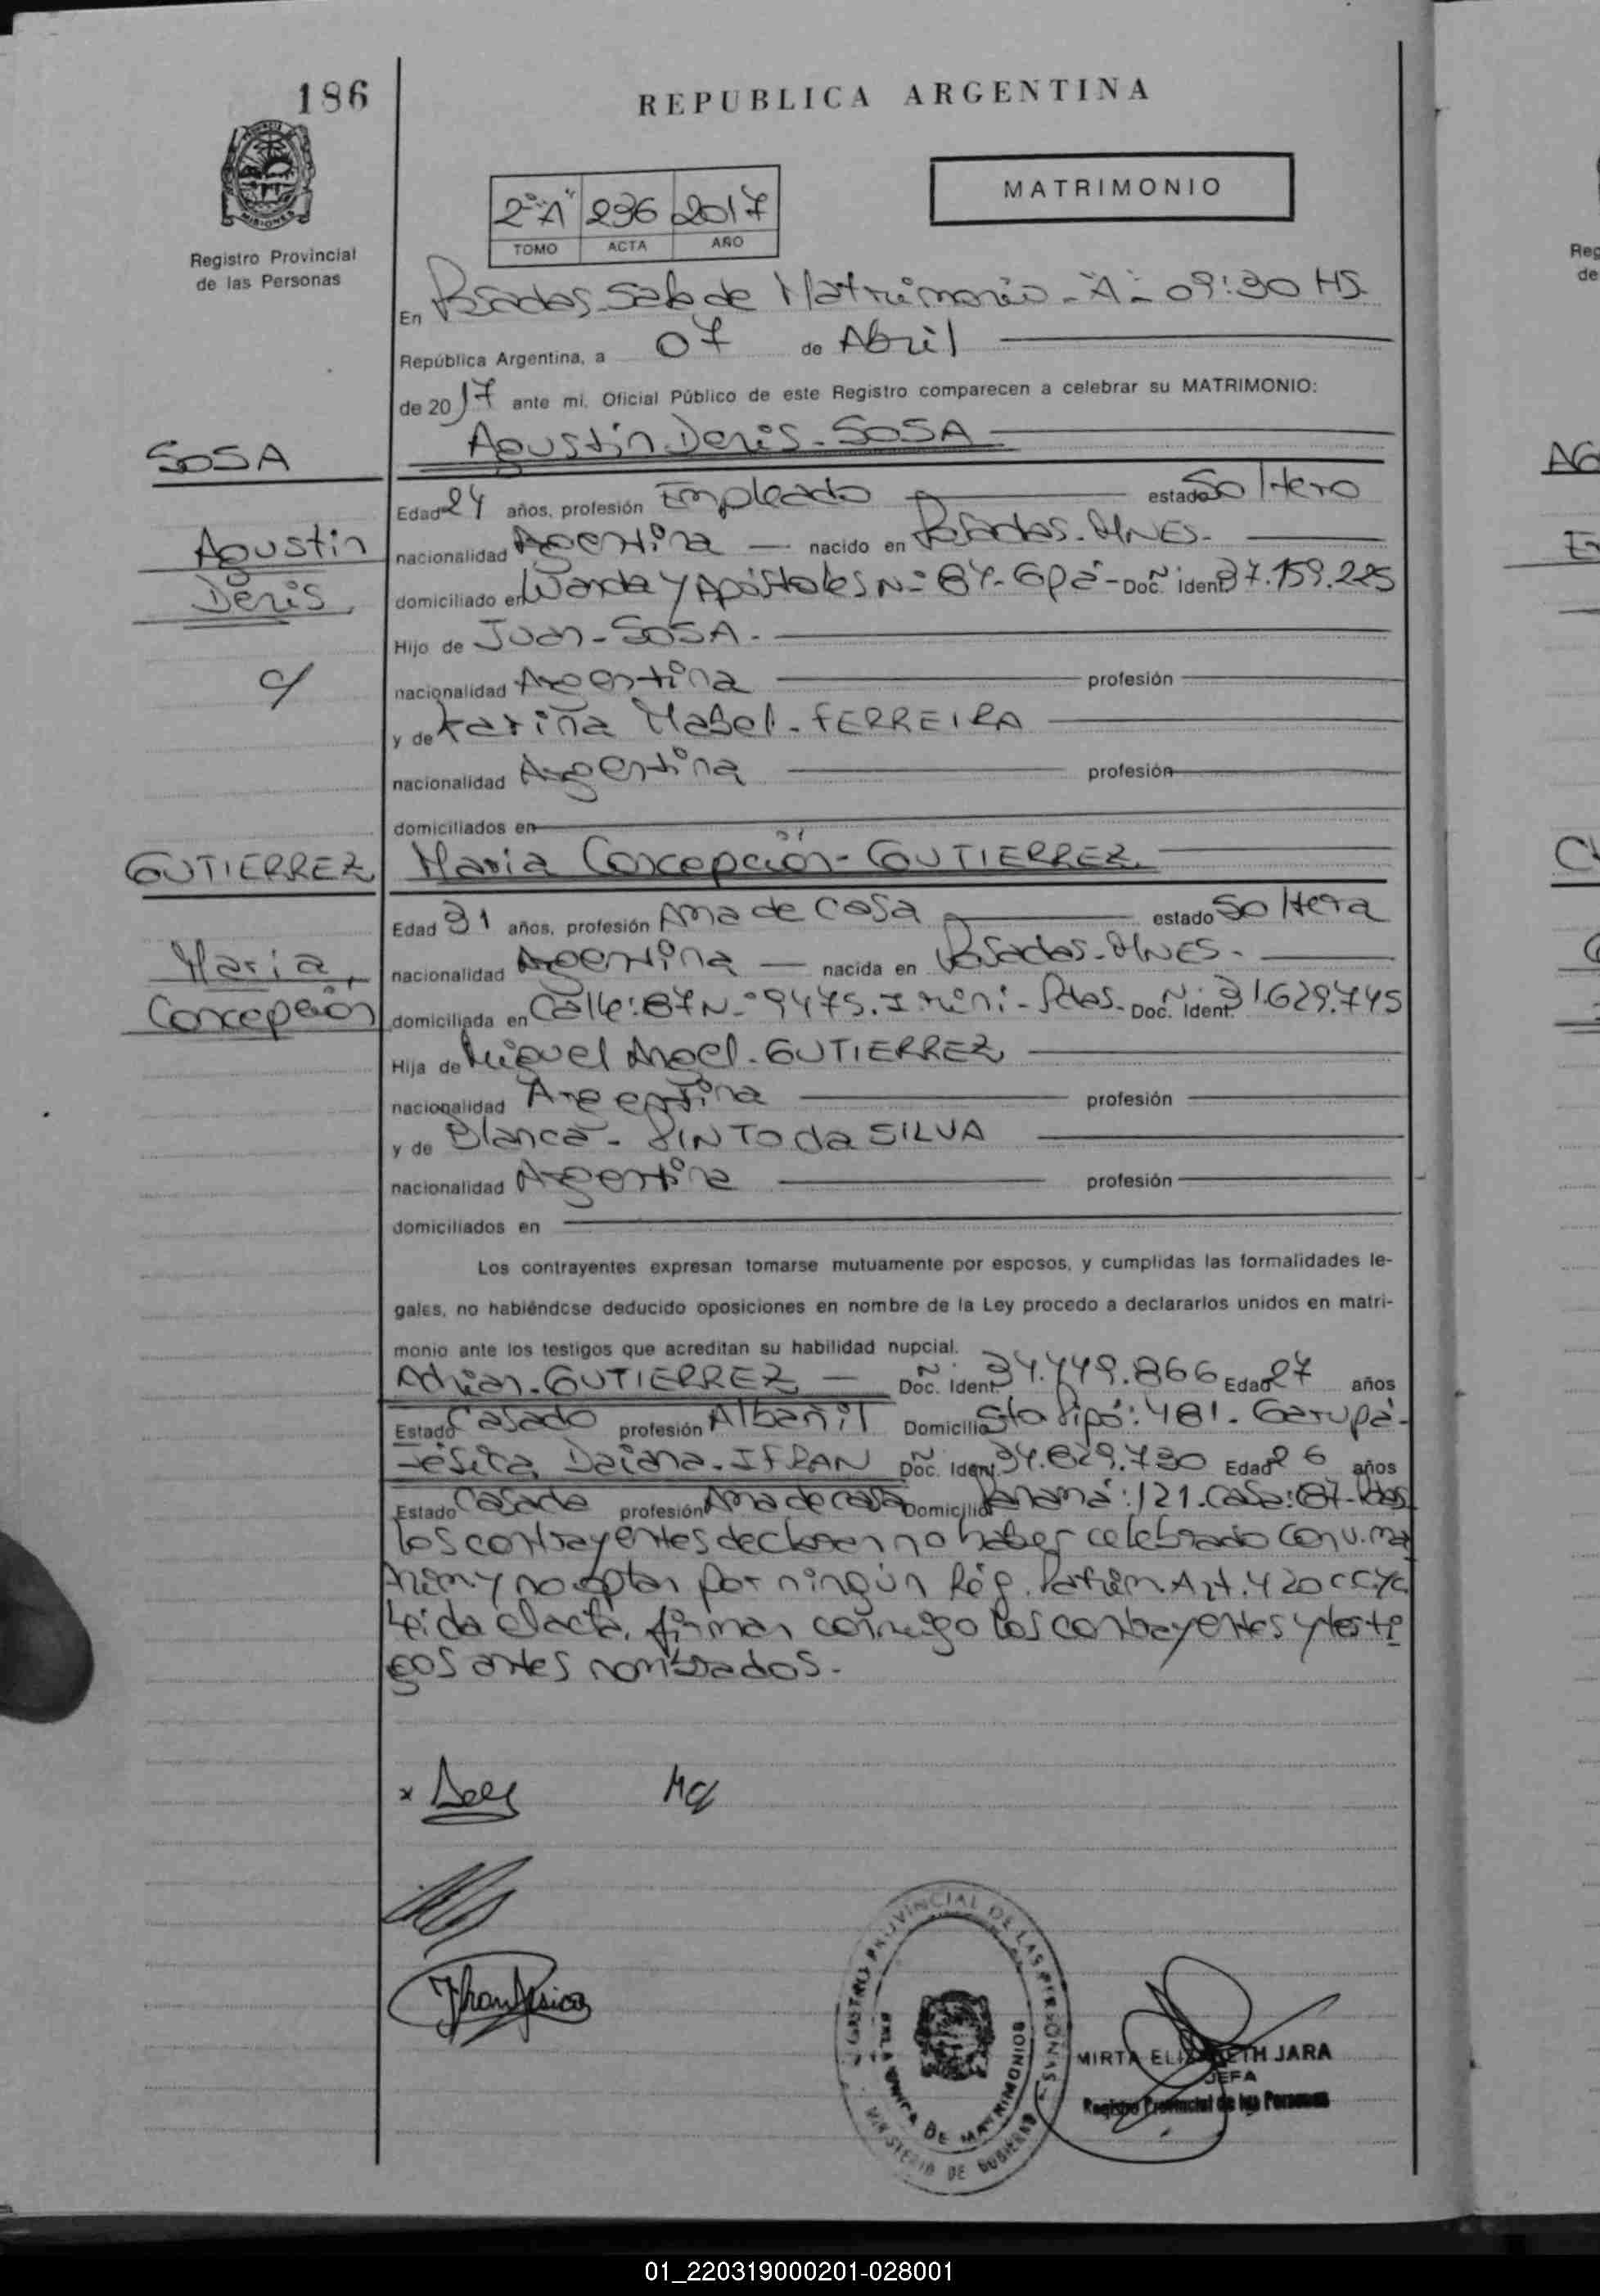 186
REPUBLICA ARGENTINA
MISIONES
Registro Provincial
de las Personas
2º"A" 236 2017
TOMO ACTA AÑO
MATRIMONIO
En Posadas-Sala de Matrimonio-"A"-09:30 HS.
República Argentina, a 07 de Abril
de 2017 ante mi, Oficial Público de este Registro comparecen a celebrar su MATRIMONIO:
SOSA
Agustin Denis-SOSA
Edad 24 años, profesión Empleado estado Soltero
Agustin
nacionalidad Argentina — nacido en Posadas-MNES.
Denis,
domiciliado en Wanda y Apóstoles N-º 84-Gpá- Doc. Ident. Nº 37.159.225
Hijo de Juan-SOSA.
c/
nacionalidad Argentina profesión
y de Karina Mabel-FERREIRA
nacionalidad Argentina profesión
domiciliados en
GUTIERREZ
Maria Concepción-GUTIERREZ
Edad 31 años, profesión Ama de Casa estado Soltera
Maria,
nacionalidad Argentina — nacida en Posadas-MNES.
Concepción
domiciliada en Calle:87 N-º 9475. I- Pdas- Doc. Ident. Nº 31.629.745
Hija de Miguel Angel-GUTIERREZ
nacionalidad Argentina profesión
y de Blanca-PINTO da SILVA
nacionalidad Argentina profesión
domiciliados en
Los contrayentes expresan tomarse mutuamente por esposos, y cumplidas las formalidades le-
gales, no habiéndose deducido oposiciones en nombre de la Ley procedo a declararlos unidos en matri-
monio ante los testigos que acreditan su habilidad nupcial.
Adrian-GUTIERREZ — Doc. Ident. Nº 34.449.866 Edad 27 años
Estado Casado profesión Albañil Domicilio Sto Pipó:481-Garupá-
Jésica Daiana-IFRAN Doc. Ident. Nº 34.829.730 Edad 26 años
Estado Casada profesión Ama de casa Domicilio Panamá:121.Casa:87-Pdas
los contrayentes declaran no haber celebrado Conv. ma
trim. y no optan por ningún Rég. Patrim. Art. 420 CCYC
Leida el acta, firman conmigo los contrayentes y testi
gos antes nombrados.
Ifran Jésica
REGISTRO PROVINCIAL DE LAS PERSONAS
SALA UNICA DE MATRIMONIOS
MINISTERIO DE GOBIERNO
MIRTA ELIZABETH JARA
JEFA
Registro Provincial de las Personas
01_220319000201-028001